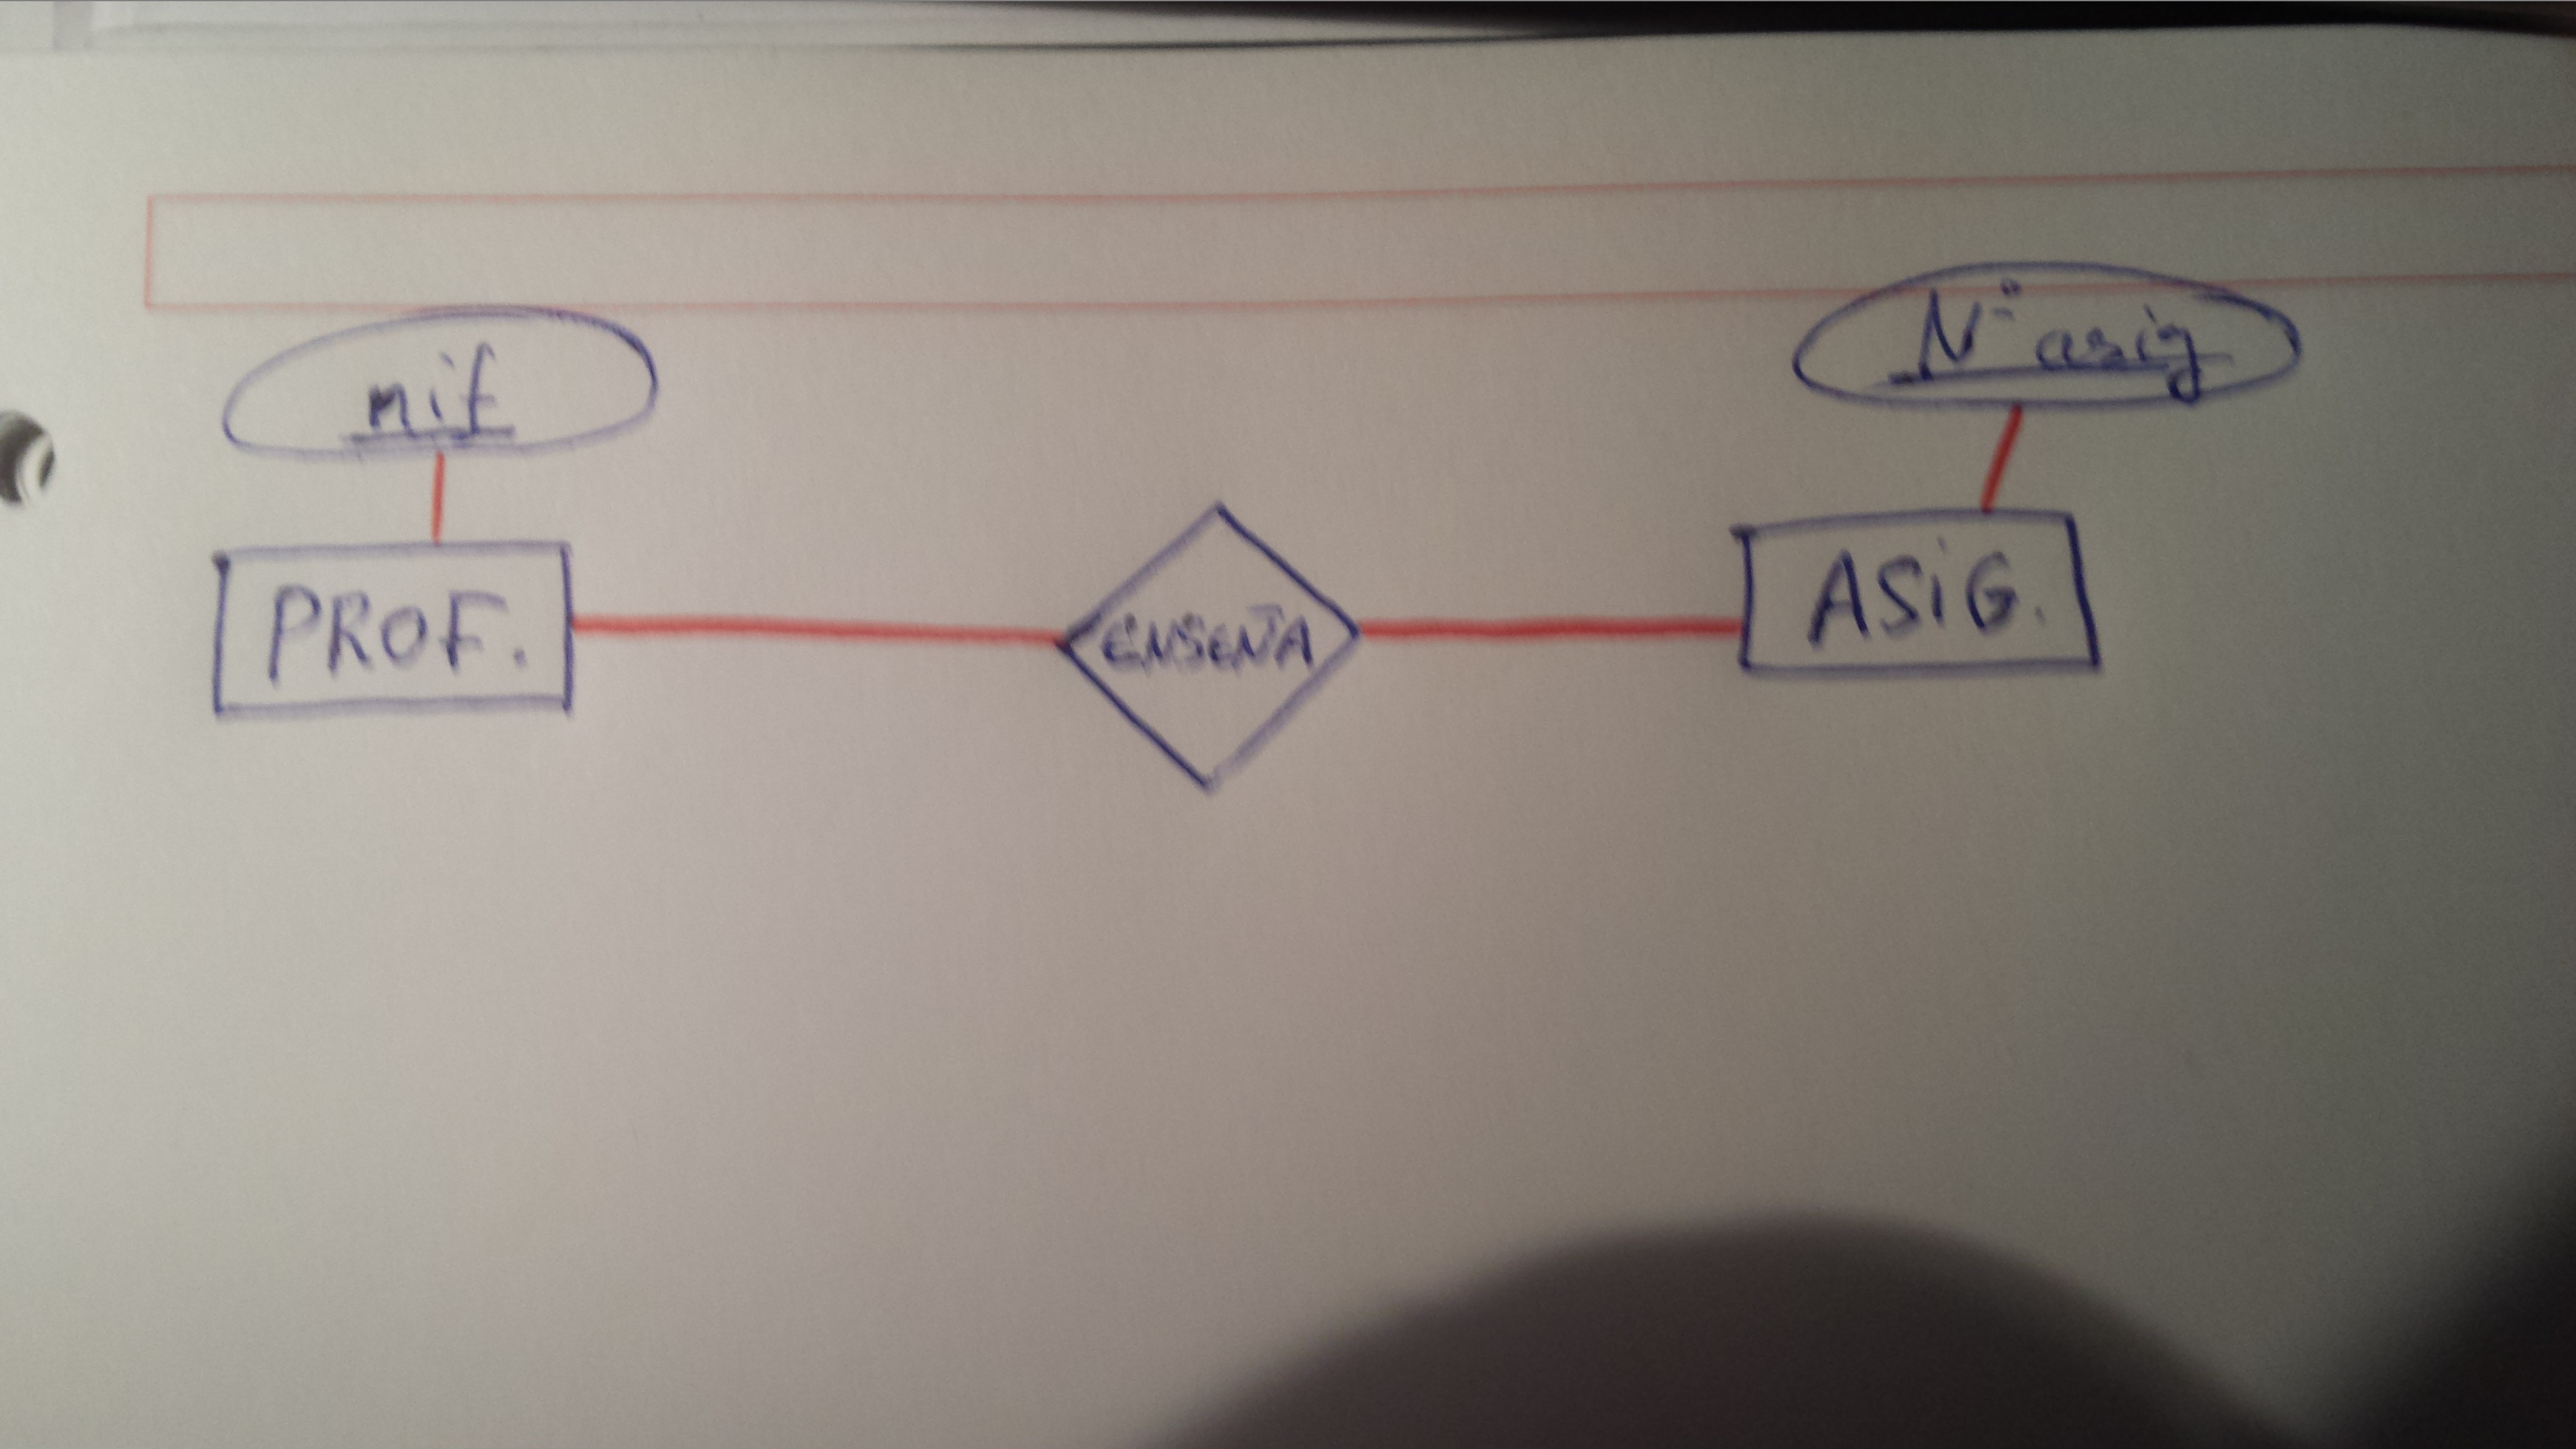 nif
Nº asig
PROF.
ENSEÑA
ASiG.